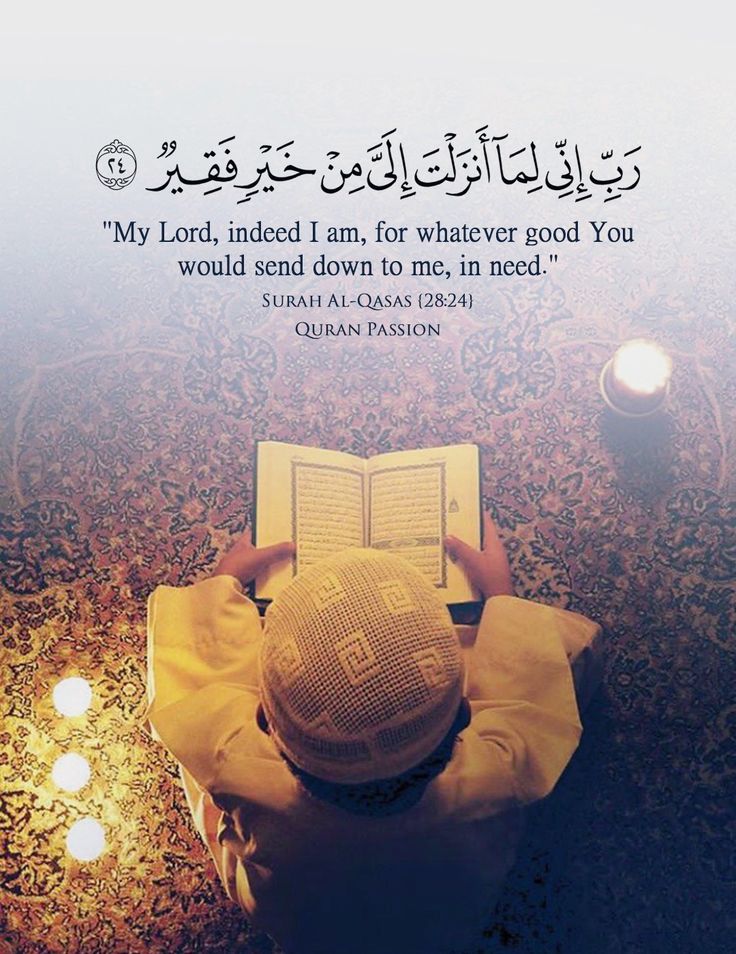 رَبِّ إِنِّي لِمَآ أَنزَلْتَ إِلَيَّ مِنْ خَيْرٍ فَقِيرٌ ٢٤
"My Lord, indeed I am, for whatever good You
would send down to me, in need."
Surah Al-Qasas {28:24}
Quran Passion